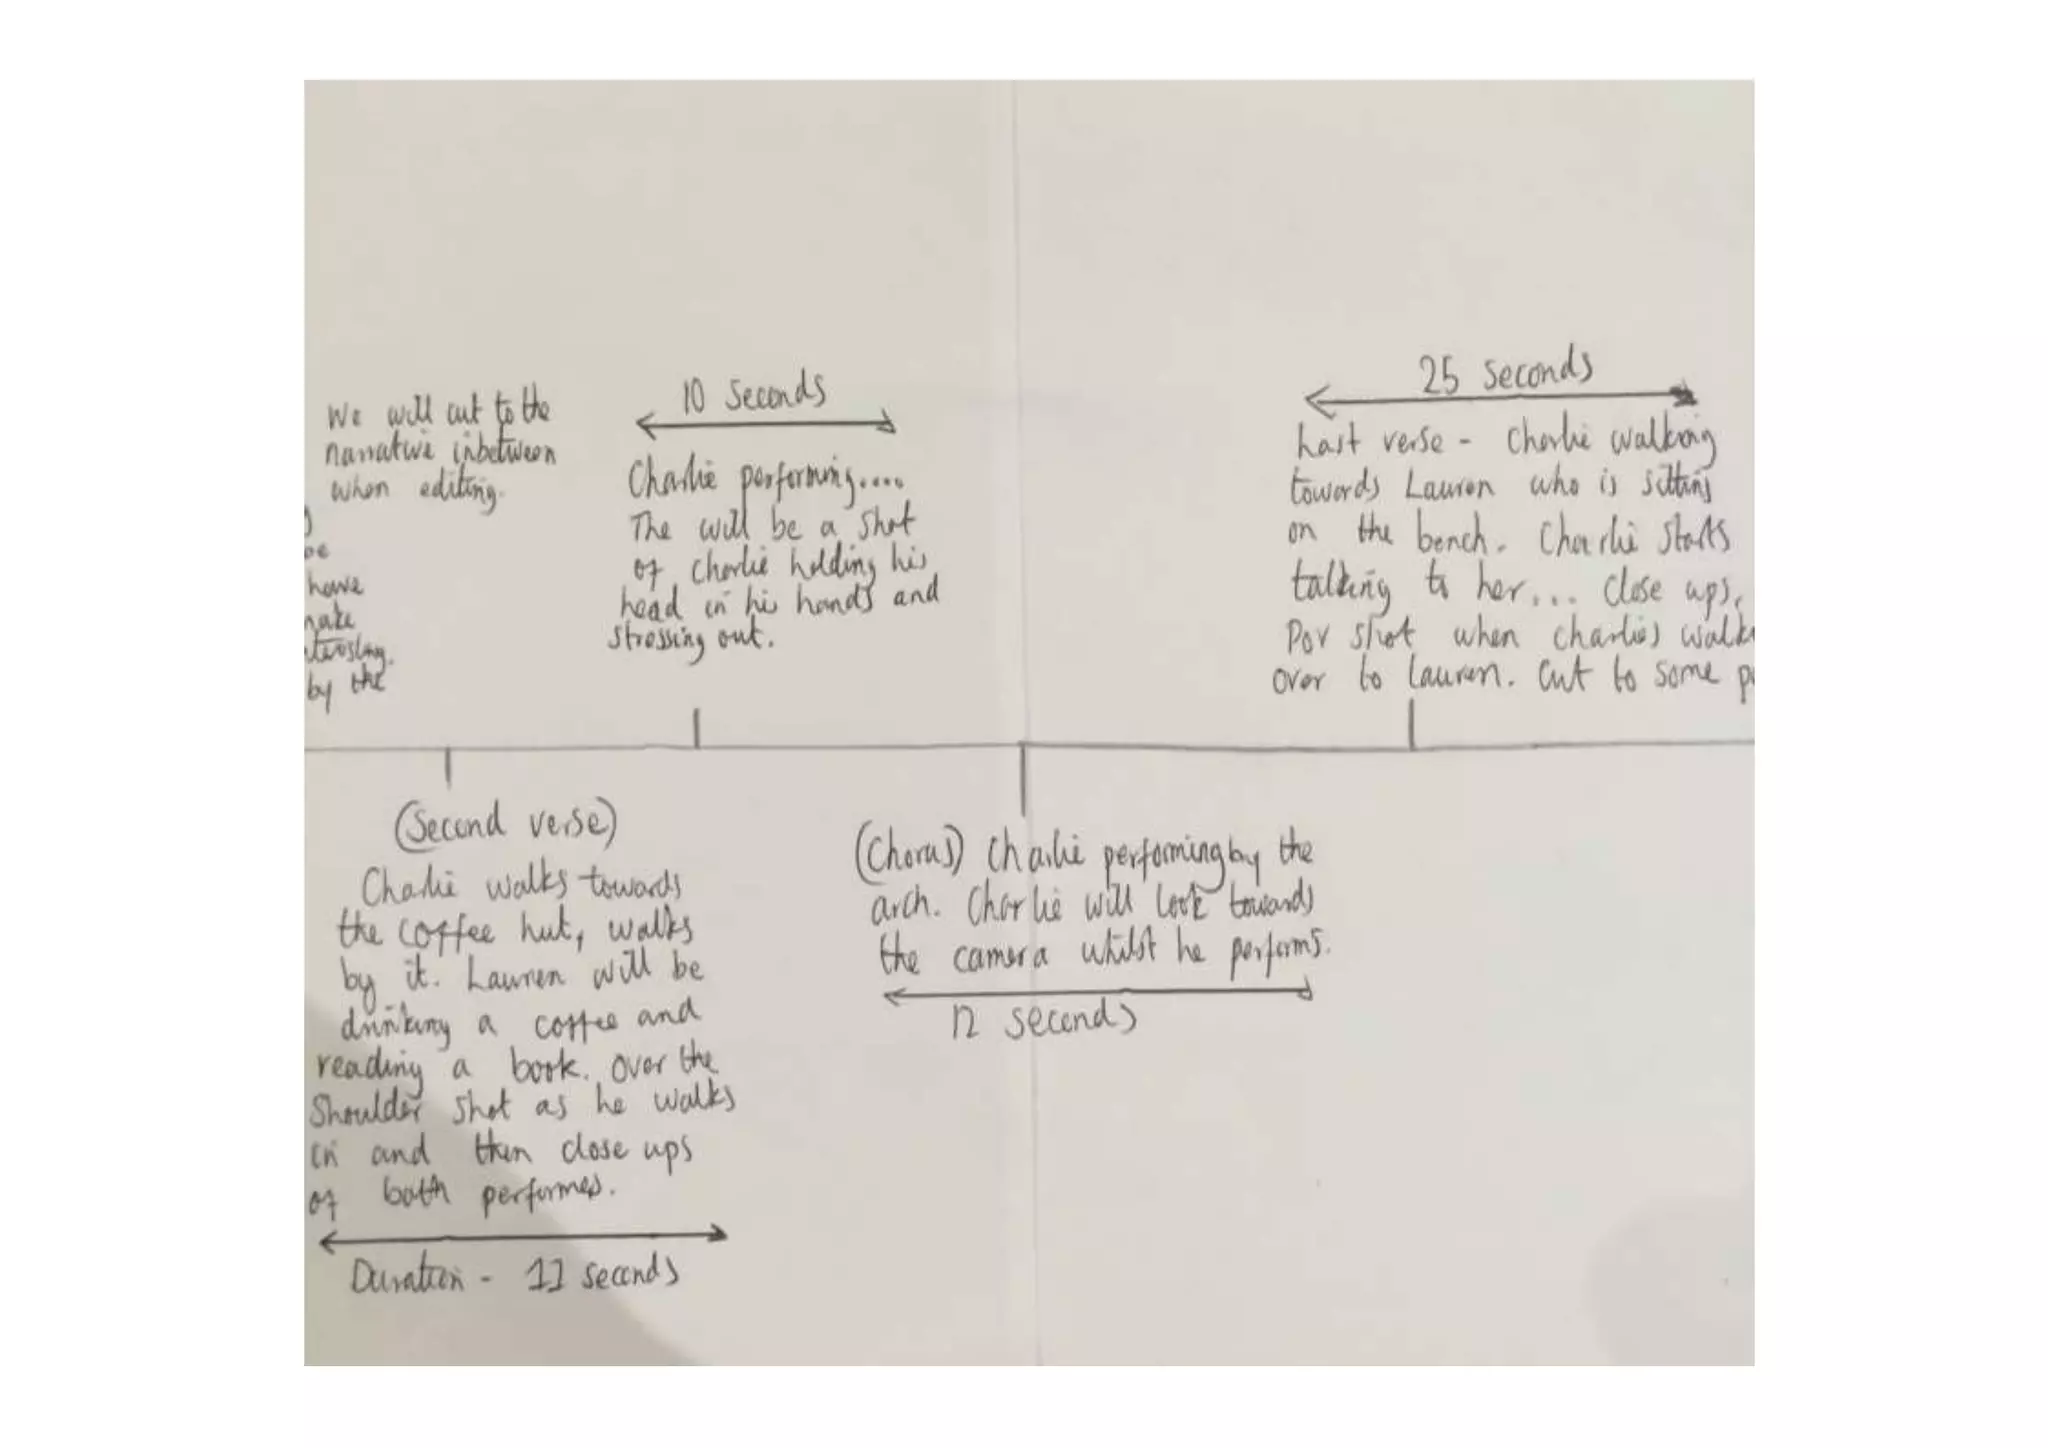 We will cut to the
narrative inbetween
when editing.
have
by the
10 seconds
Charlie performing....
The will be a shot
of Charlie holding his
head in his hands and
stressing out.
25 seconds
Last verse - Charlie walking
towards Lauren who is sitting
on the bench. Charlie starts
talking to her... Close ups,
POV shot when Charlies walk
over to Lauren. Cut to some
(Second verse)
Charlie walks towards
the coffee hut, walks
by it. Lauren will be
drinking a coffee and
reading a book. Over the
Shoulder shot as he walks
in and then close ups
of both performes.
Duration - 11 seconds
(Chorus) Charlie performing by the
arch. Charlie will look towards
the camera whilst he performs.
12 seconds